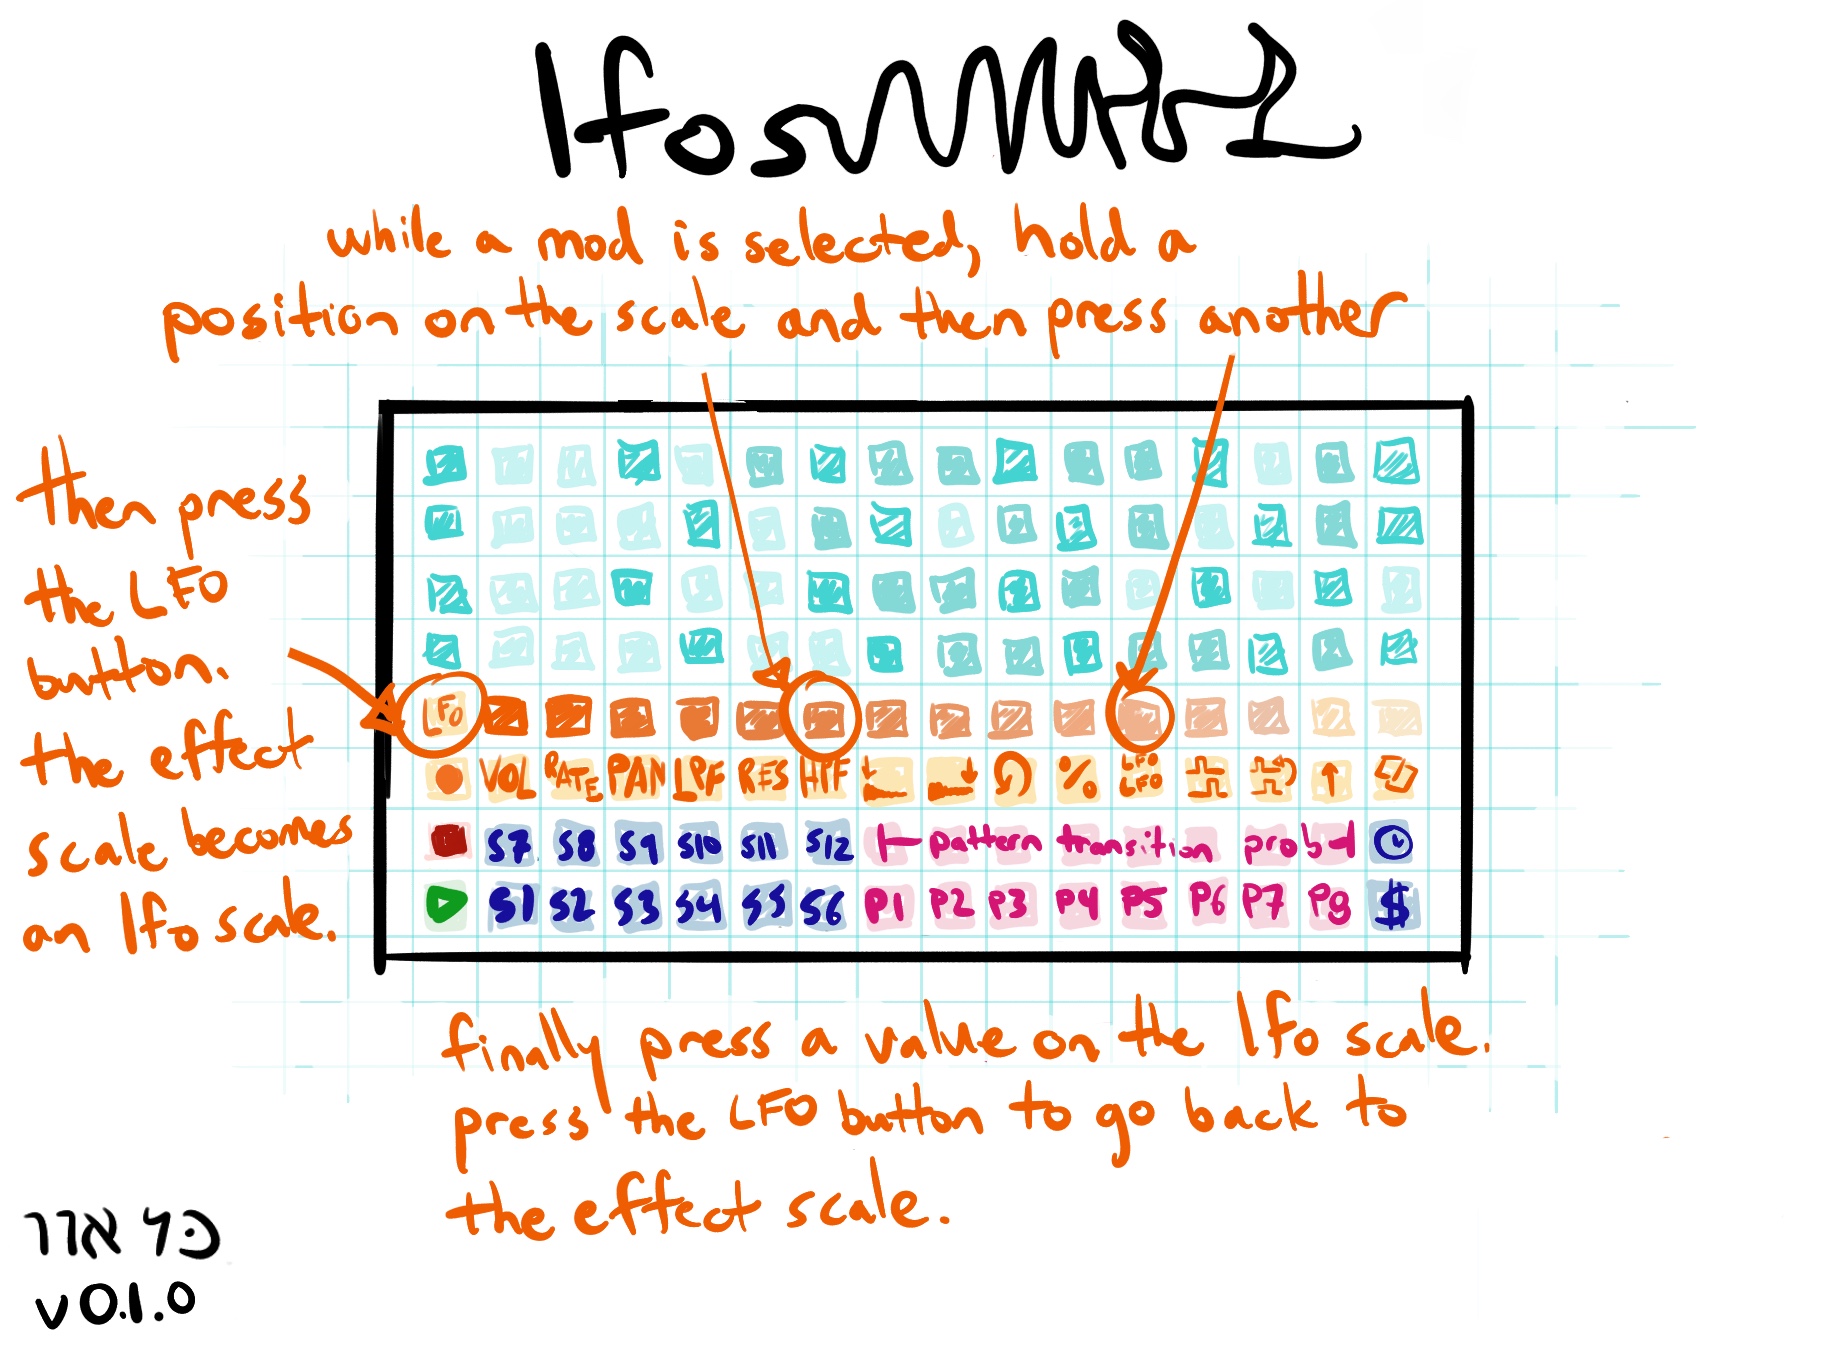 lfos
while a mod is selected, hold a
position on the scale and then press another
then press
the LFO
button.
the effect
scale becomes
an lfo scale.
LFO
VOL RATE PAN LPF RES HPF % LFO LFO
S7 S8 S9 S10 S11 S12 pattern transition prob
S1 S2 S3 S4 S5 S6 P1 P2 P3 P4 P5 P6 P7 P8 $
finally press a value on the lfo scale.
press the LFO button to go back to
the effect scale.
v0.1.0